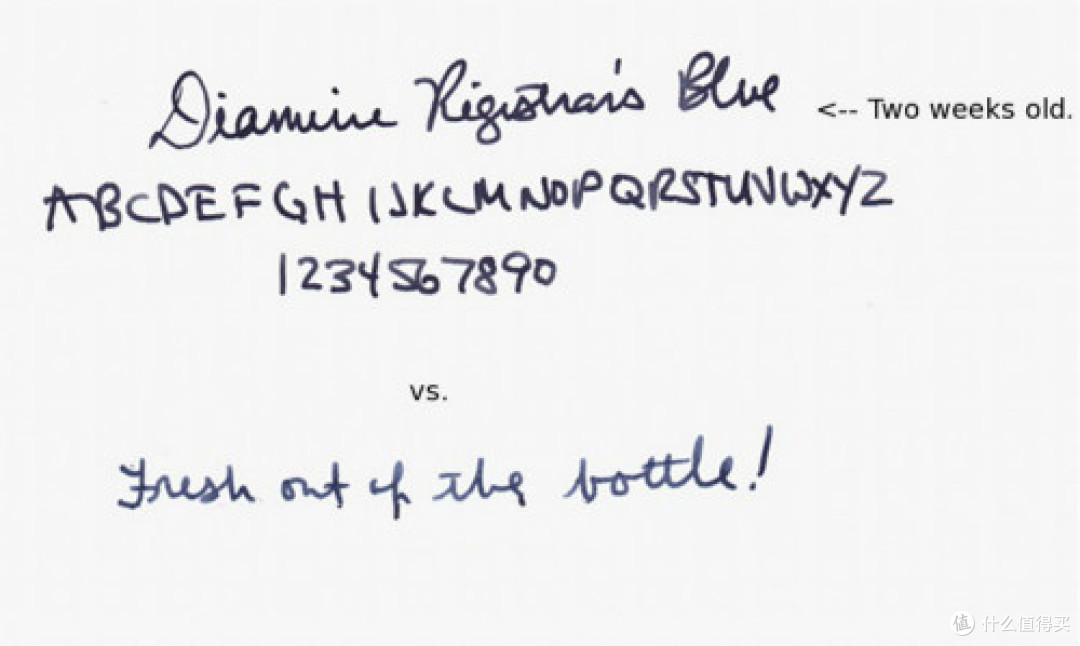 Diamine Registrar's Blue <-- Two weeks old.
ABCDEFGHIJKLMNOPQRSTUVWXYZ
1234567890
vs.
Fresh out of the bottle!
值 什么值得买